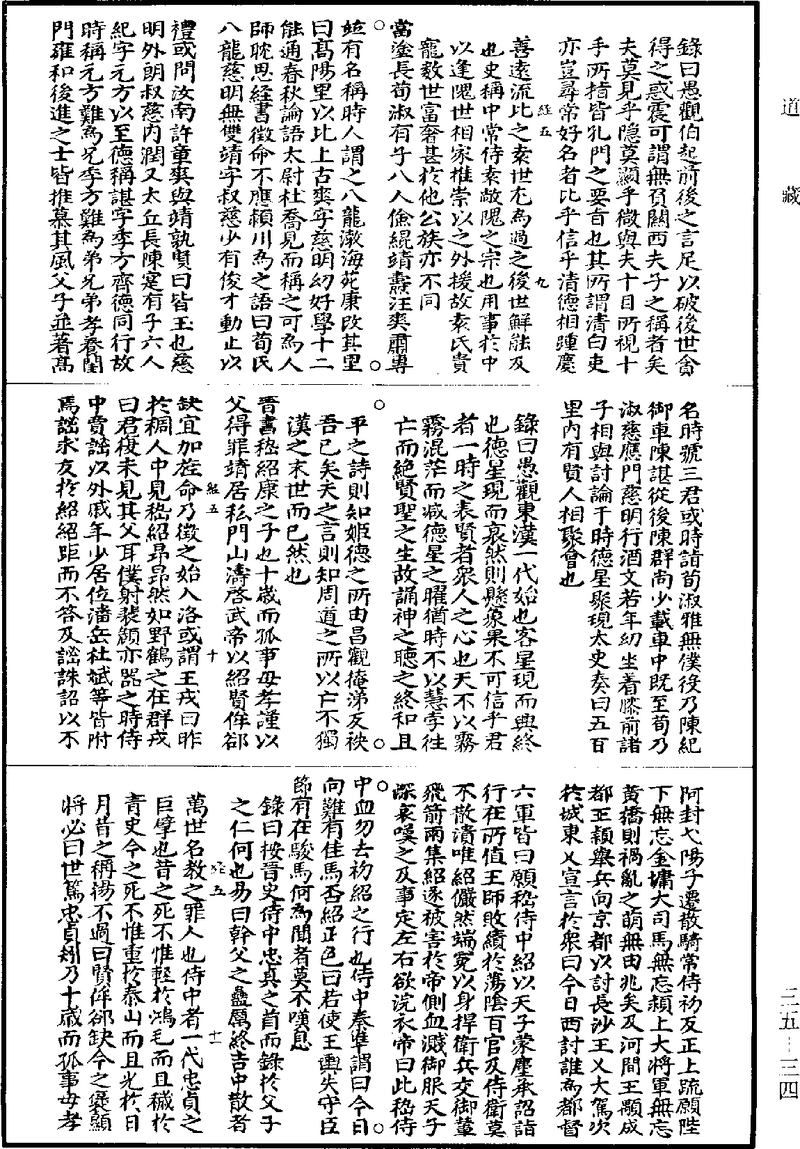 道藏
錄曰愚觀伯起前後之言足以破後世貪
得之惑震可謂無負關西夫子之稱者矣
夫莫見乎隱莫顯乎微與夫十目所視十
手所指皆孔門之要旨也其所謂清白吏
亦豈尋常好名者比乎信乎清德相踵慶
經五 九
善遠流比之素世尤為過之後世鮮能及
也史稱中常侍袁敞隗之宗也用事於中
以逢隗世相家推崇以之外援故袁氏貴
寵數世富奢甚於他公族亦不同
○ ○
當塗長荀淑有子八人儉緄靖燾汪爽肅專
竝有名稱時人謂之八龍渤海苑康改其里
曰高陽里以比上古爽字慈明幼好學十二
能通春秋論語太尉杜喬見而稱之可為人
師耽思經書徵命不應潁川為之語曰荀氏
八龍慈明無雙靖字叔慈少有俊才動止以
禮或問汝南許章爽與靖孰賢曰皆玉也慈
明外朗叔慈內潤又太丘長陳寔有子六人
紀字元方以至德稱諶字季方齊德同行故
時稱元方難為兄季方難為弟兄弟孝養閨
門雍和後進之士皆推慕其風父子並著高
名時號三君或時詣荀淑雅無僕役乃陳紀
御車陳諶從後陳群尚少載車中既至荀乃
淑慈應門慈明行酒文若年幼坐着膝前諸
子相與討論于時德星聚現太史奏曰五百
里內有賢人相聚會也
錄曰愚觀東漢一代始也客星現而興終
也德星現而哀然則懸象果不可信乎君
者一時之表賢者衆人之心也天不以霧
霧混茫而滅德星之曜猶時不以慧孛往
亡而絕賢聖之生故誦神之聽之終和且
○ ○
平之詩則知姬德之所由昌觀掩涕反袂
吾已矣夫之言則知周道之所以亡不獨
漢之末世而已然也
晉書嵇紹康之子也十歲而孤事母孝謹以
父得罪靖居私門山濤啓武帝以紹賢侔郤
經五 十
缺宜加旌命乃徵之始入洛或謂王戎曰昨
於稠人中見嵇紹昂昂然如野鶴之在群戎
曰君復未見其父耳僕射裴頠亦器之時侍
中賈謐以外戚年少居位潘岳杜斌等皆附
焉謐求友於紹紹距而不答及謐誅詔以不
阿封弋陽子遷散騎常侍初反正上疏願陛
下無忘金墉大司馬無忘潁上大將軍無忘
黃橋則禍亂之萌無由兆矣及河間王顒成
都王穎舉兵向京都以討長沙王乂大駕次
於城東乂宣言於衆曰今日西討誰為都督
六軍皆曰願嵇侍中紹以天子蒙塵承詔詣
行在所值王師敗績於蕩陰百官及侍衛莫
不散潰唯紹儼然端冕以身捍衛兵交御輦
飛箭雨集紹遂被害於帝側血濺御服天子
深哀嘆之及事定左右欲浣衣帝曰此嵇侍
○ ○
中血勿去初紹之行也侍中秦準謂曰今日
向難有佳馬否紹正色曰若使王輿失守臣
節有在駿馬何為聞者莫不嘆息
錄曰按晉史侍中忠貞之首而錄於父子
之仁何也易曰幹父之蠱厲終吉中散者
經五 十一
萬世名教之罪人也侍中者一代忠貞之
巨擘也昔之死不惟輕於鴻毛而且穢於
青史今之死不惟重於泰山而且光於日
月昔之稱揚不過曰賢侔郤缺今之褒顯
將必曰世篤忠貞矧乃十歲而孤事母孝
二五―三四